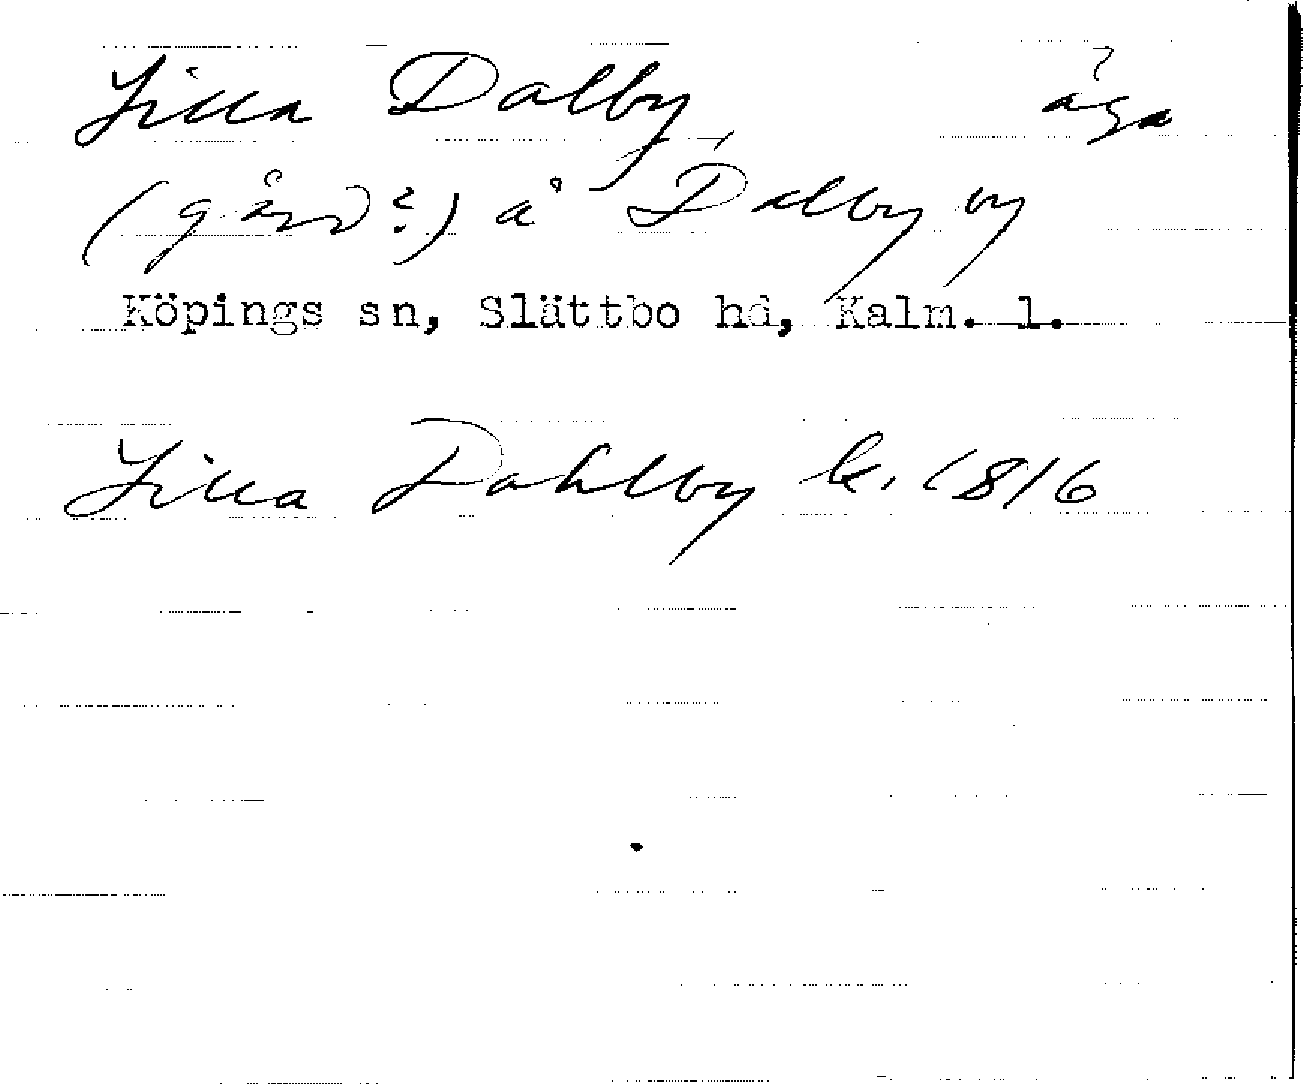 Lilla Dalby, åga
(gård?) å Dalby by
Köpings sn, Slättbo hd, Kalm. l.
Lilla Dahlby k. 1816